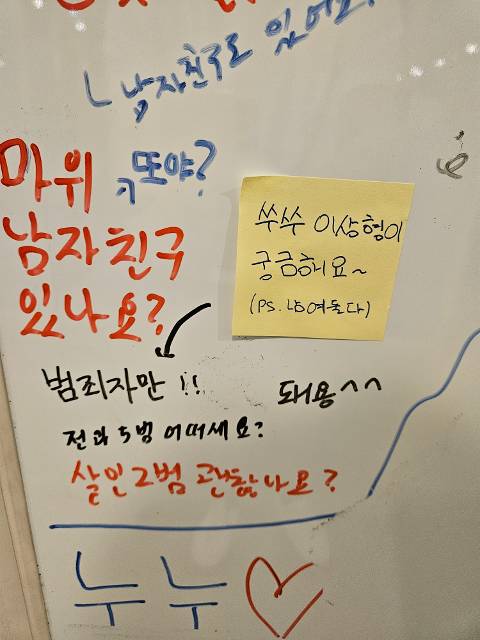 ㄴ 남자친구도 있어요
또야?
마위
남자친구
있나요?
쑤쑤 이상형이
궁금해요~
(PS. 남여둘다)
범죄자만 !!
돼용^^
전과 5범 어떠세요?
살인2범 괜찮나요?
누누♡